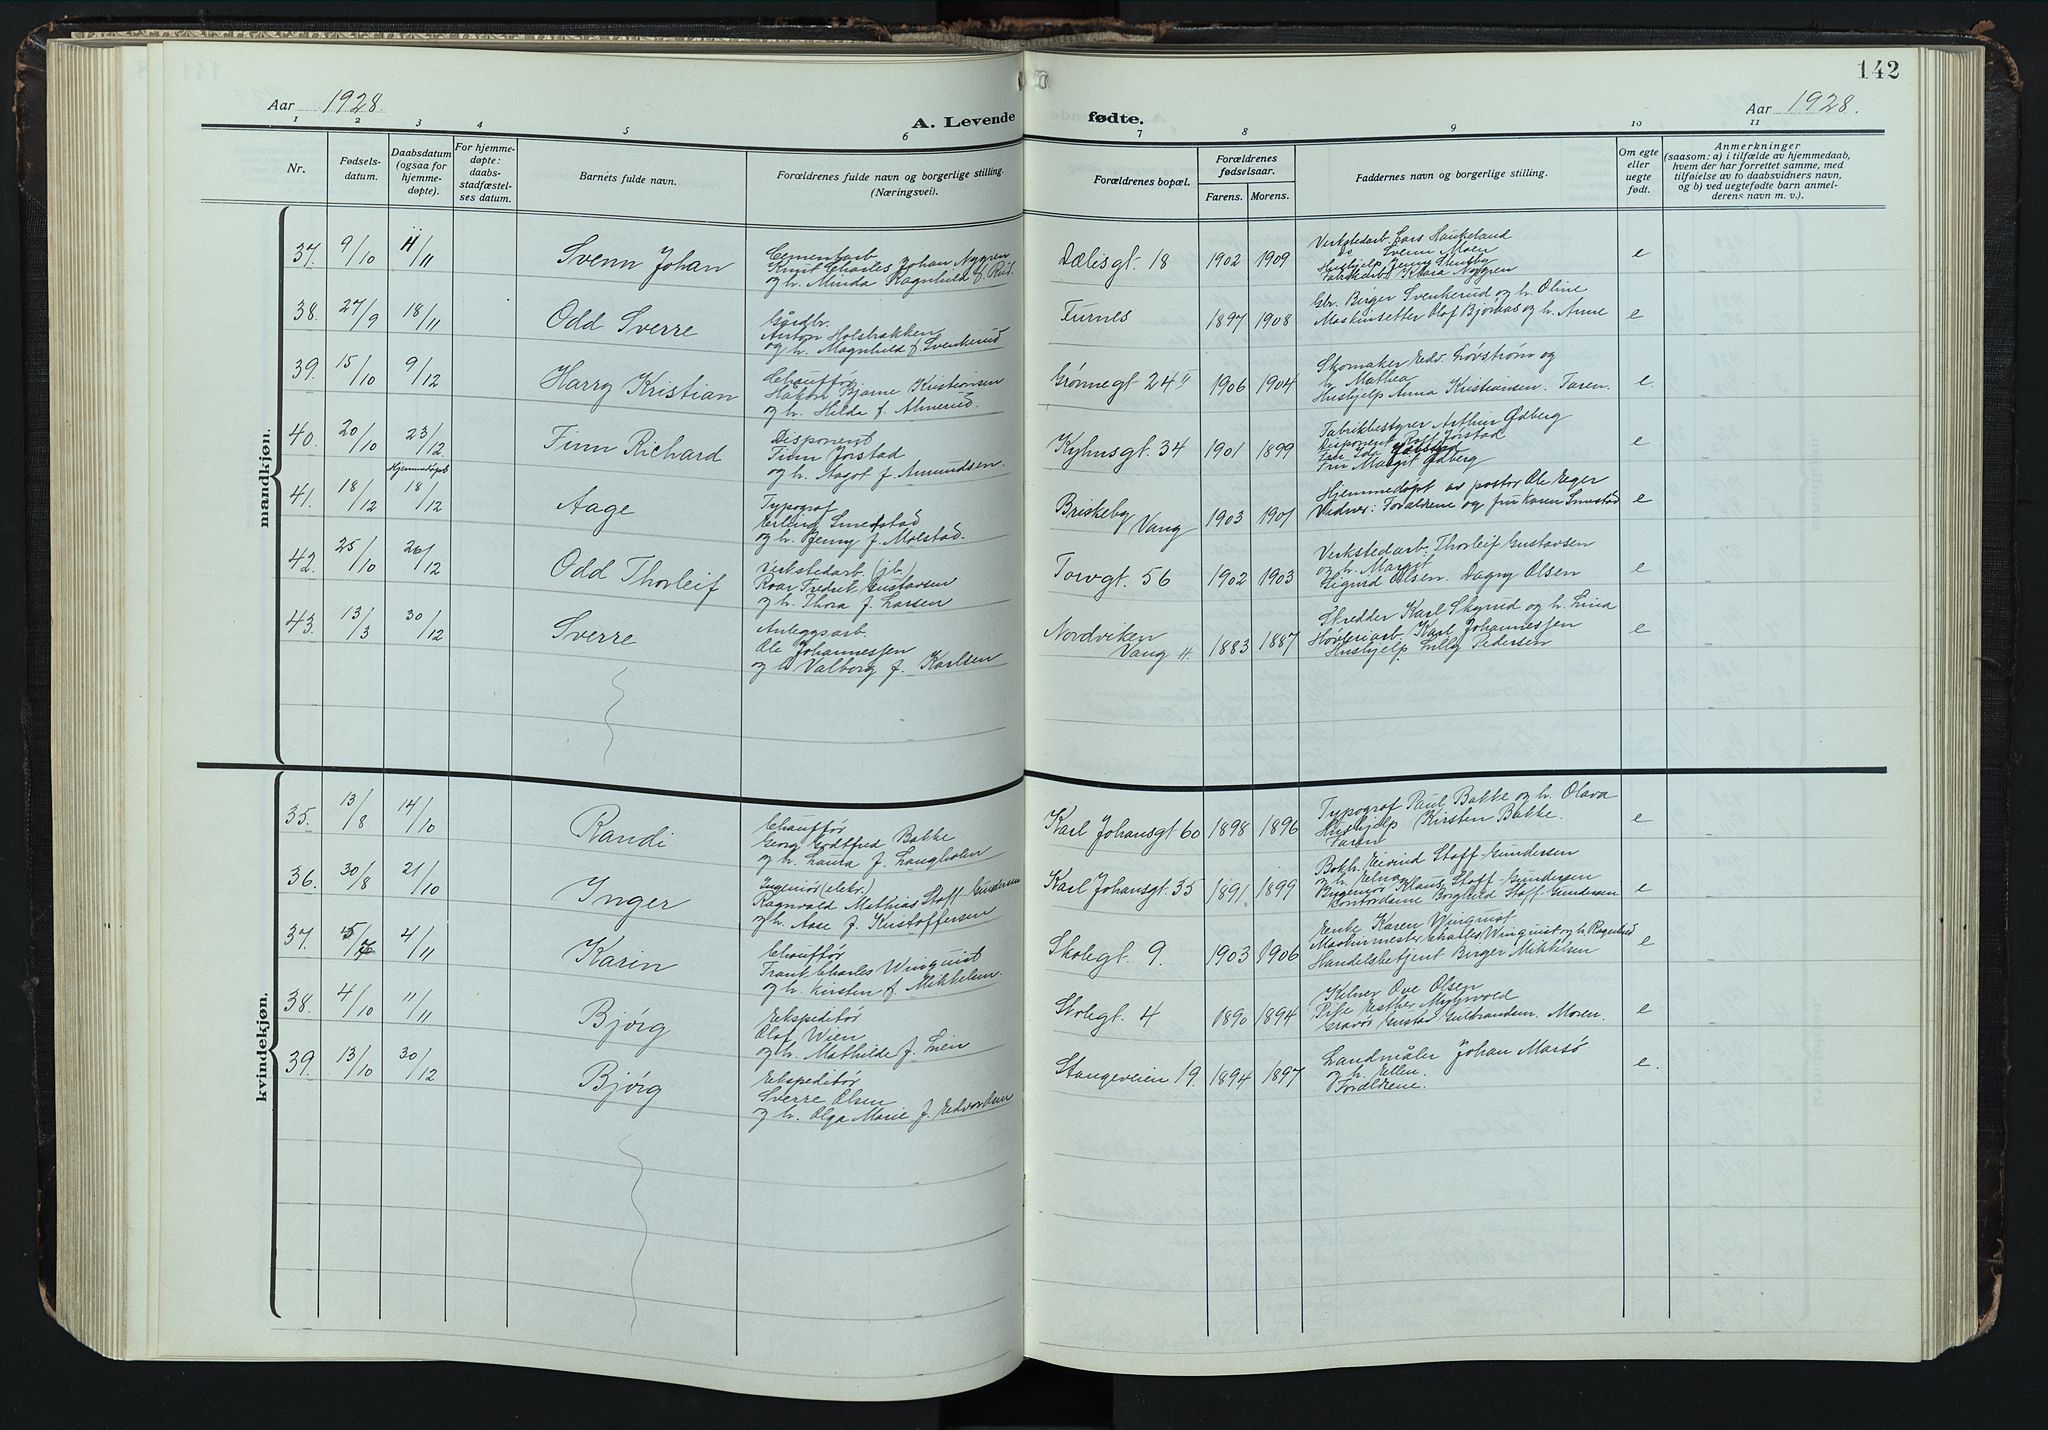 142
Aar 1928.
A. Levende fødte.
Aar 1928.
1 2 3 4 5 6 7 8 9 10 11
Nr.
Fødsels-
datum.
Daabsdatum
(ogsaa for
hjemme-
døpte).
For hjemme-
døpte:
daabs-
stadfæstel-
ses datum.
Barnets fulde navn.
Forældrenes fulde navn og borgerlige stilling.
(Næringsvei).
Forældrenes bopæl.
Forældrenes
fødselsaar.
Farens. Morens.
Faddernes navn og borgerlige stilling.
Om egte
eller
uegte
født.
Anmerkninger
(saasom: a) i tilfælde av hjemmedaab,
hvem der har forrettet samme, med
tilføielse av to daabsvidners navn,
og b) ved uegtefødte barn anmel-
derens navn m. v.).
mandkjøn.
37. 9/10 4/11 Svenn Johan
Cementarb.
Knut Charles Johan Nygren
og h. Minda Ragnhild f. Rud.
Dælisgt. 18 1902 1909
Verkstedarb. Lars Haukeland
Do Svenn Moen
Hushjelp Jenny Stensby
Fabrikarb. Klara Nygren
e
38. 27/9 18/11 Odd Sverre
Gårdbr.
Anton Holsbrakken
og h. Magnhild f. Svenkerud
Furnes 1897 1908
Gbr. Birger Svenkerud og h. Oline
Maskinsetter Olof Bjøraas og h. Anne
e
39. 15/10 9/12 Harry Kristian
Chauffør
Håkon Bjarne Kristiansen
og h. Hilda f. Almerud.
Grønnegt 24 II 1906 1904
Skomaker Edv. Løvstrøm og
h. Mathea
Hushjelp Anna Kristiansen. Faren.
e.
40. 20/10 23/12 Finn Richard
Disponent
Finn Jorstad
og h. Aagot f. Amundsen.
Kyhnsgt. 34 1901 1899
Fabrikbestyrer Arthur Ødberg
Disponent Rolf Jorstad
Frk. Ida
Fru Margit Ødberg
e
41. 18/12 Hjemmedøpt 18/12 Aage
Typograf
Erling Smestad
og h. Jenny f. Molstad.
Briskeby
Vang 1903 1901
Hjemmedøpt av pastor Ole Eger
Vidner: Foræltrene og fru Karen Smestad
e
42. 25/10 26/12 Odd Thorleif
Verkstedarb. (jb.)
Roar Fredrik Gustavsen
og h. Thora f. Larsen
Torvgt. 56 1902 1903
Verkstedarb. Thorleif Gustavsen
og h. Margit
Sigrid Olsen. Dagny Olsen
e
43. 13/3 30/12 Sverre
Anleggsarb.
Ole Johannessen
og h. Valborg f. Karlsen
Nordviken
Vang H. 1883 1887
Skredder Karl Skyrud og h. Lina
Høvleriarb. Karl Johannessen
Hushjelp Lilly Pedersen
e
kvindekjøn.
35. 13/8 14/10 Randi
Chauffør
Georg Godtfred Bakke
og h. Laura f. Langholen
Karl Johansgt 60 1898 1896
Typograf Paul Bakke og h. Olava
Hushjelp Kirsten Bakke.
Faren
e
36. 30/8 21/10 Inger
Ingeniør (elektr.)
Ragnvald Mathias Stoff-Gundersen
og h. Aase f. Kristoffersen
Karl Johansgt. 35 1891 1899
Bokh. Eivind Stoff-Gundersen
og h. Elna
Ingeniør Klaus Stoff-Gundersen
Kontordame Borghild Stoff-Gundersen
e
37. 5/7 4/11 Karin
Chauffør
Frank Charles Winquist
og h. Kirsten f. Mikkelsen.
Skolegt. 9. 1903 1906
Enke Karen Winquist
Maskinmester Charles Winquist og h. Ragnhild
Handelsbetjent Birger Mikkelsen
e
38. 4/10 11/11 Bjørg
Ekspeditør
Olaf Wien
og h. Mathilde f. Lien
Skolegt. 4 1890 1894
Kelner Ove Olsen
Pike Esther Myhrvold
Gravør Gustav Gulbrandsen. Moren.
e
39. 13/10 30/12 Bjørg
Ekspeditør
Sverre Olsen
og h. Olga Marie f. Edvardsen
Stangeveien 19. 1894 1897
Landmåler Johan Marsø
og h. Ellen.
Forældrene.
e.